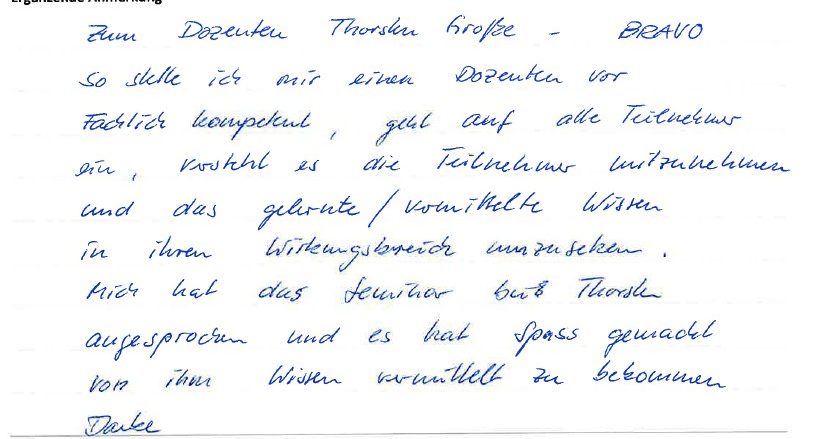 Ergänzende Anmerkung
Zum Dozenten Thorsten Große – BRAVO
So stelle ich mir einen Dozenten vor
Fachlich kompetent, geht auf alle Teilnehmer
ein, versteht es die Teilnehmer mitzunehmen
und das gelernte / vermittelte Wissen
in ihren Wirkungsbereich umzusetzen.
Mich hat das Seminar Thorsten
angesprochen und es hat Spass gemacht
von ihm Wissen vermittelt zu bekommen
Danke